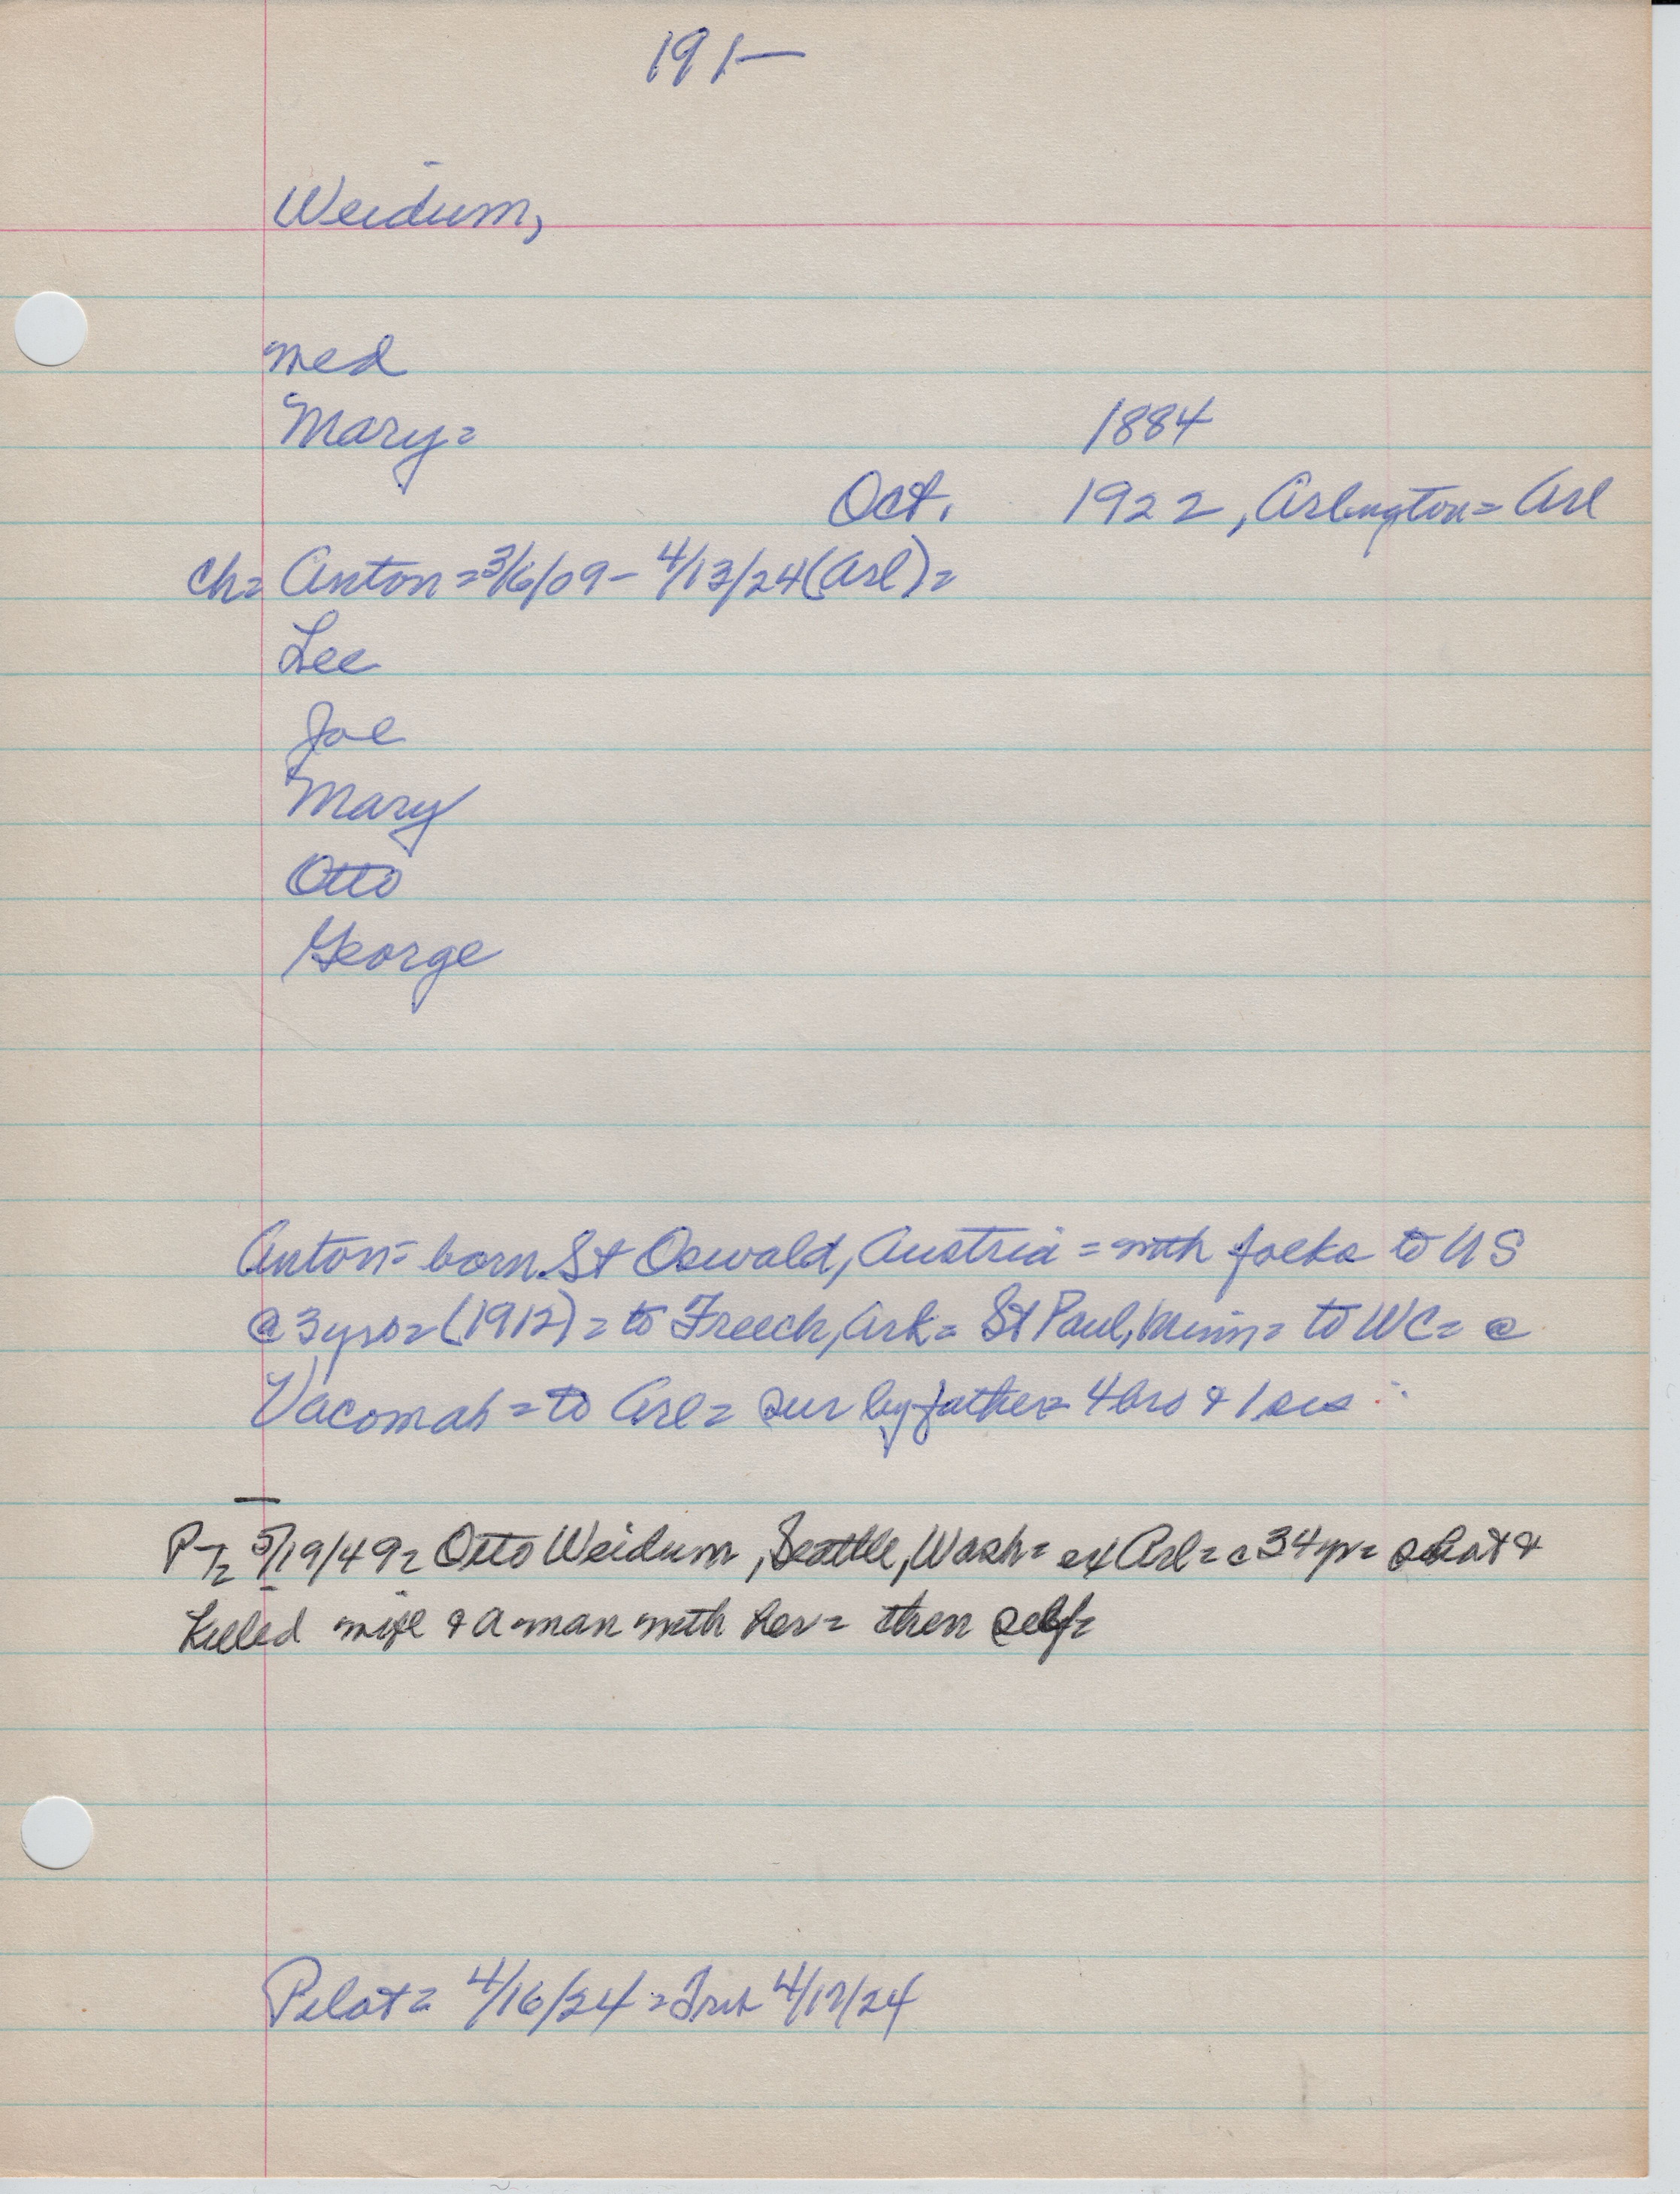 191-
Weidum,
med
Mary=
1884
Oct. 1922, Arlington= Arl
ch= Anton=3/6/09- 4/13/24(Arl)=
Lee
Joe
Mary
Otto
George
Anton= born St Oswald, Austria = with folks to US
@ 3yrs= (1912) = to Freech, Ark= St Paul, Minn= to WC= @
Vacomah = to Arl= sur by father= 4bro & 1 sis
P-T= 5/19/49= Otto Weidum, Seattle, Wash= ex Arl= c 34yr= shot &
killed wife & a man with her= then self=
Pilot= 4/16/24 = Trib 4/17/24